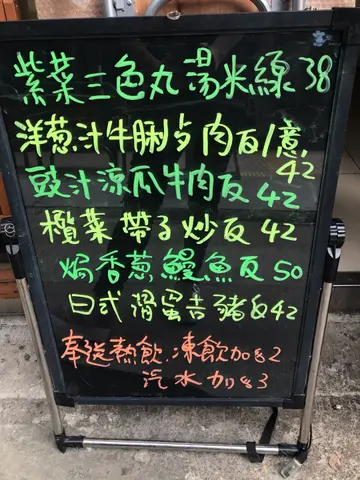 紫菜三色丸湯米線 38
洋葱汁牛脷与肉反/意
42
豉汁涼瓜牛肉反 42
欖菜帶子炒反 42
焗香葱鰻魚反 50
日式滑蛋吉豬反 42
奉送熱飲,凍飲加$2
汽水加$3